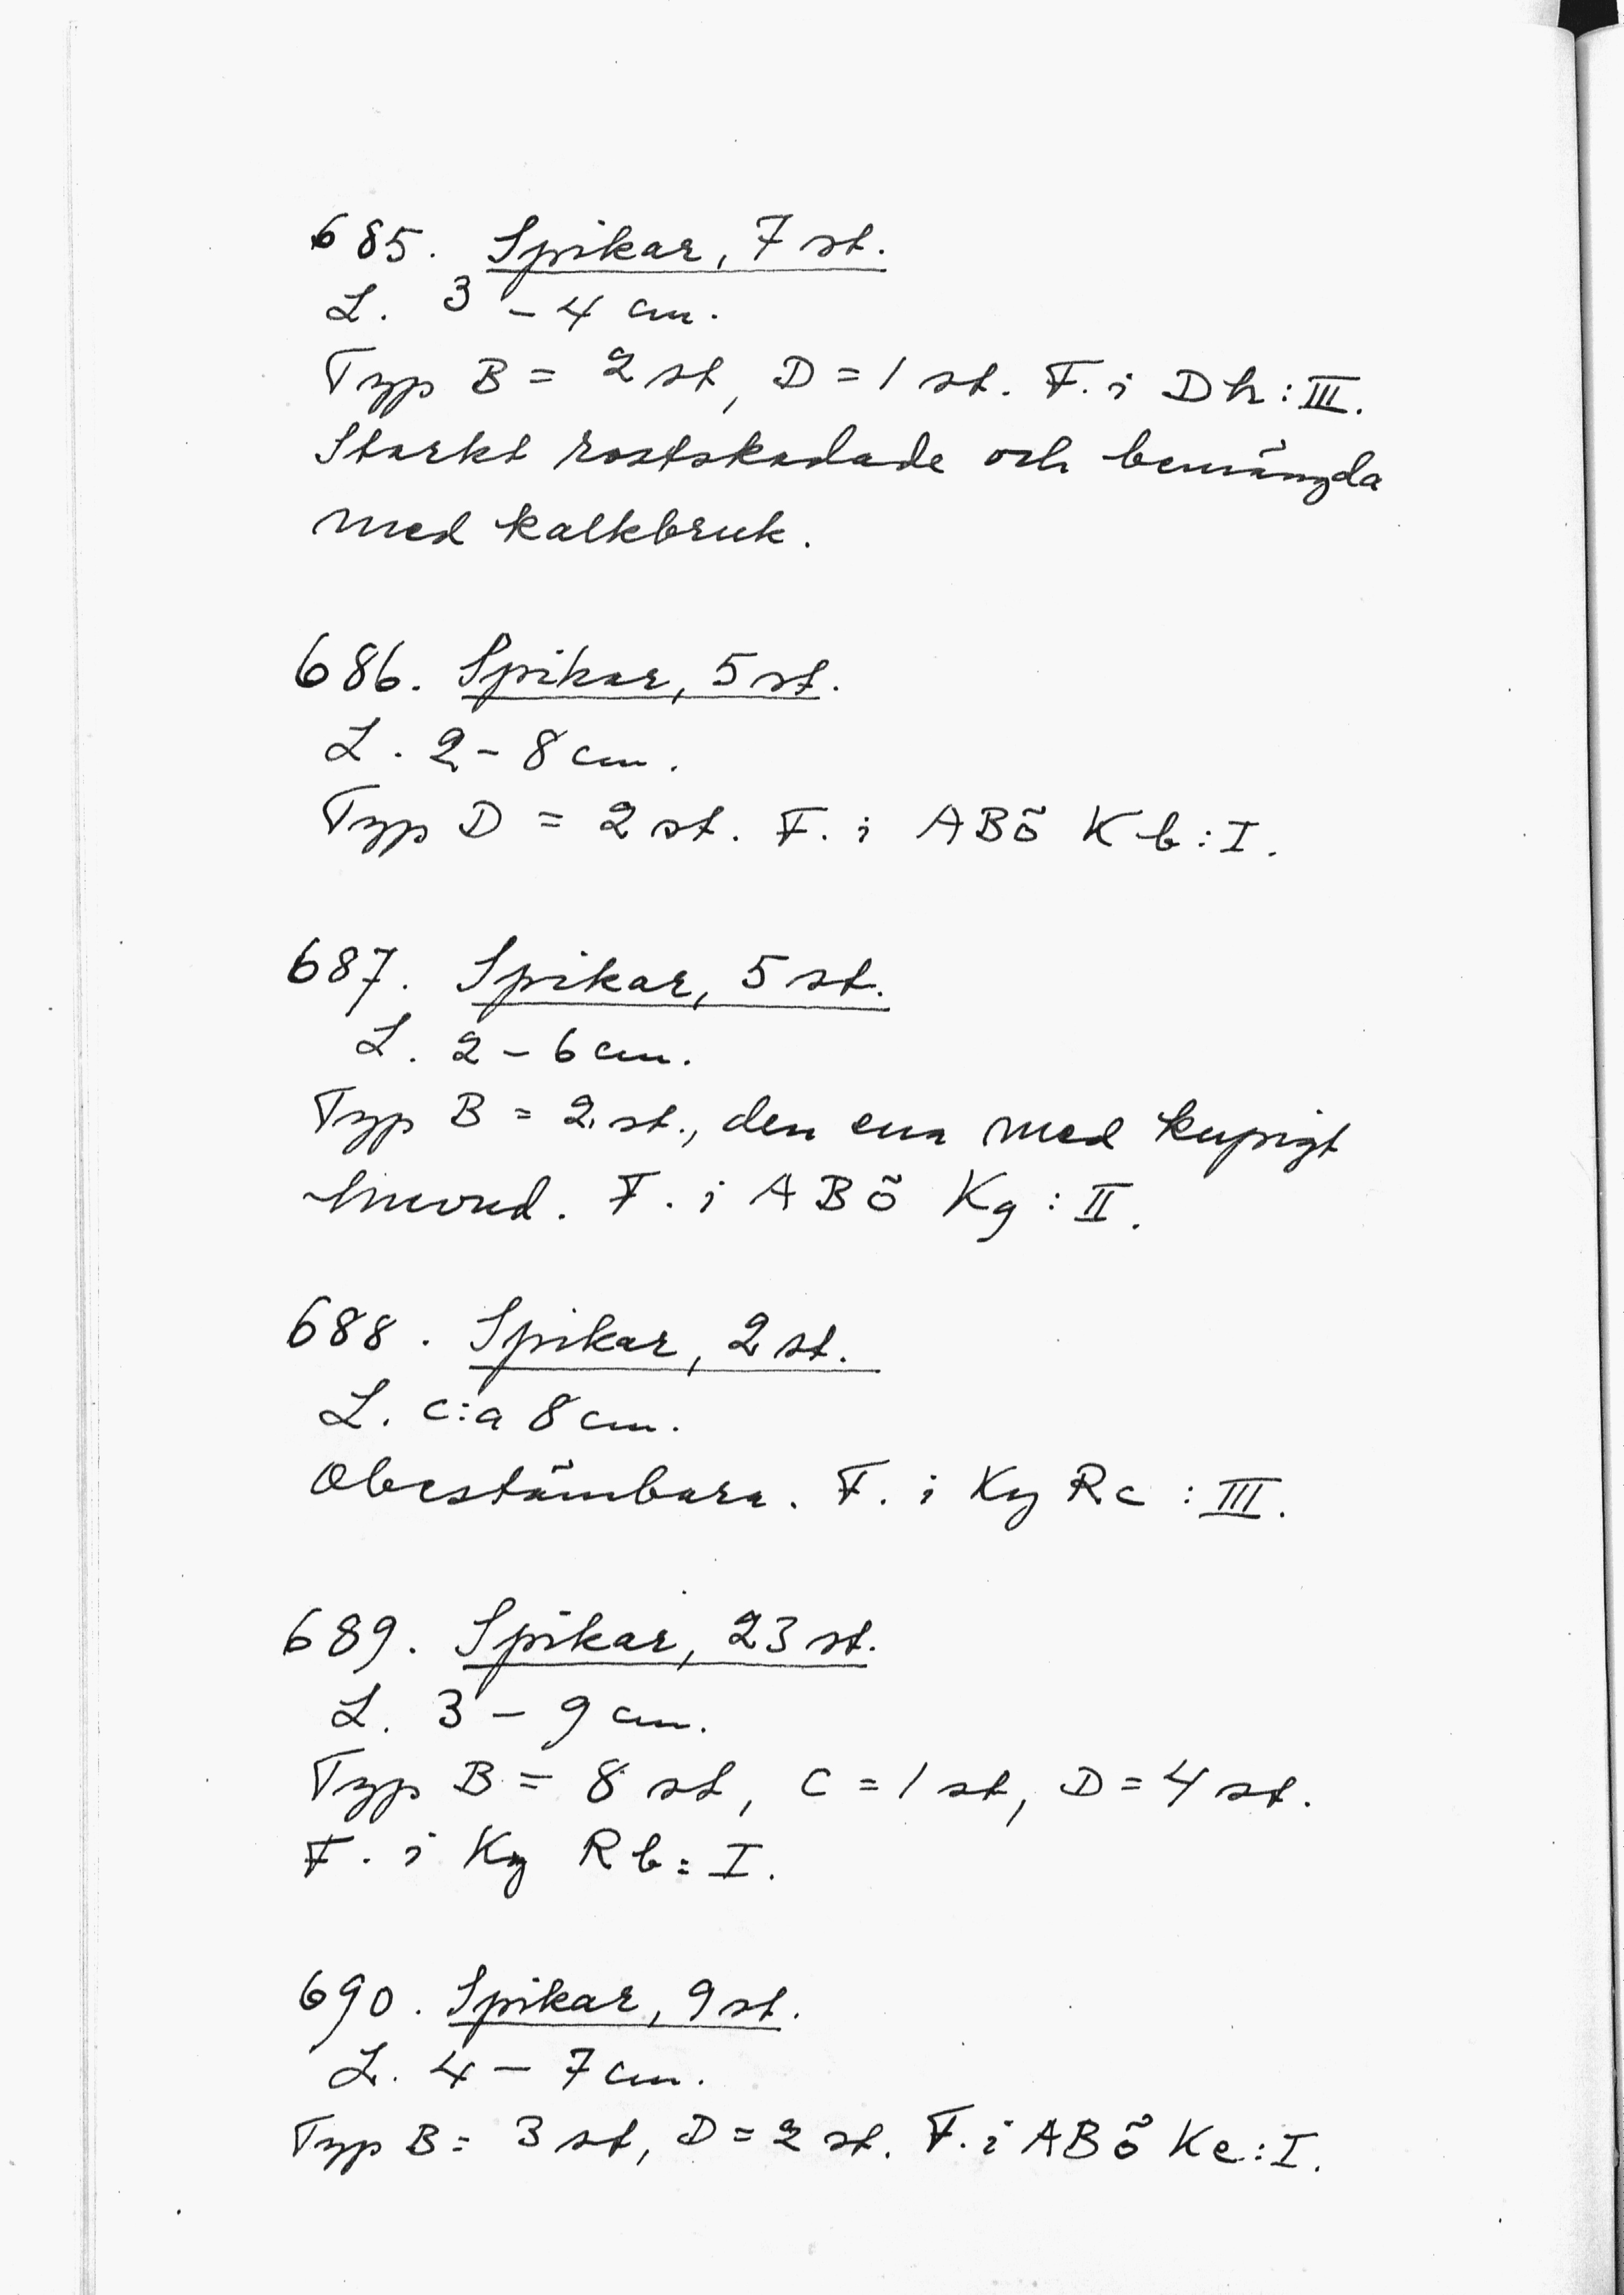 685. Spikar, 7 st.
L. 3 - 4 cm.
Typ B = 2 st, D = 1 st. F. i Dh : III.
Starkt rostskadade och bemängda
med kalkbruk.
686. Spikar, 5 st.
L. 2 - 8 cm.
Typ D = 2 st. F. i ABÖ Kb : I.
687. Spikar, 5 st.
L. 2 - 6 cm.
Typ B = 2 st., den ena med kupigt
huvud. F. i ABÖ Kg : II.
688. Spikar, 2 st.
L. c:a 8 cm.
Obestämbara. F. i Ky Rc : III.
689. Spikar, 23 st.
L. 3 - 9 cm.
Typ B = 8 st, C = 1 st, D = 4 st.
F. i Ky Rb : I.
690. Spikar, 9 st.
L. 4 - 7 cm.
Typ B = 3 st, D = 2 st. F. i ABÖ Ke : I.